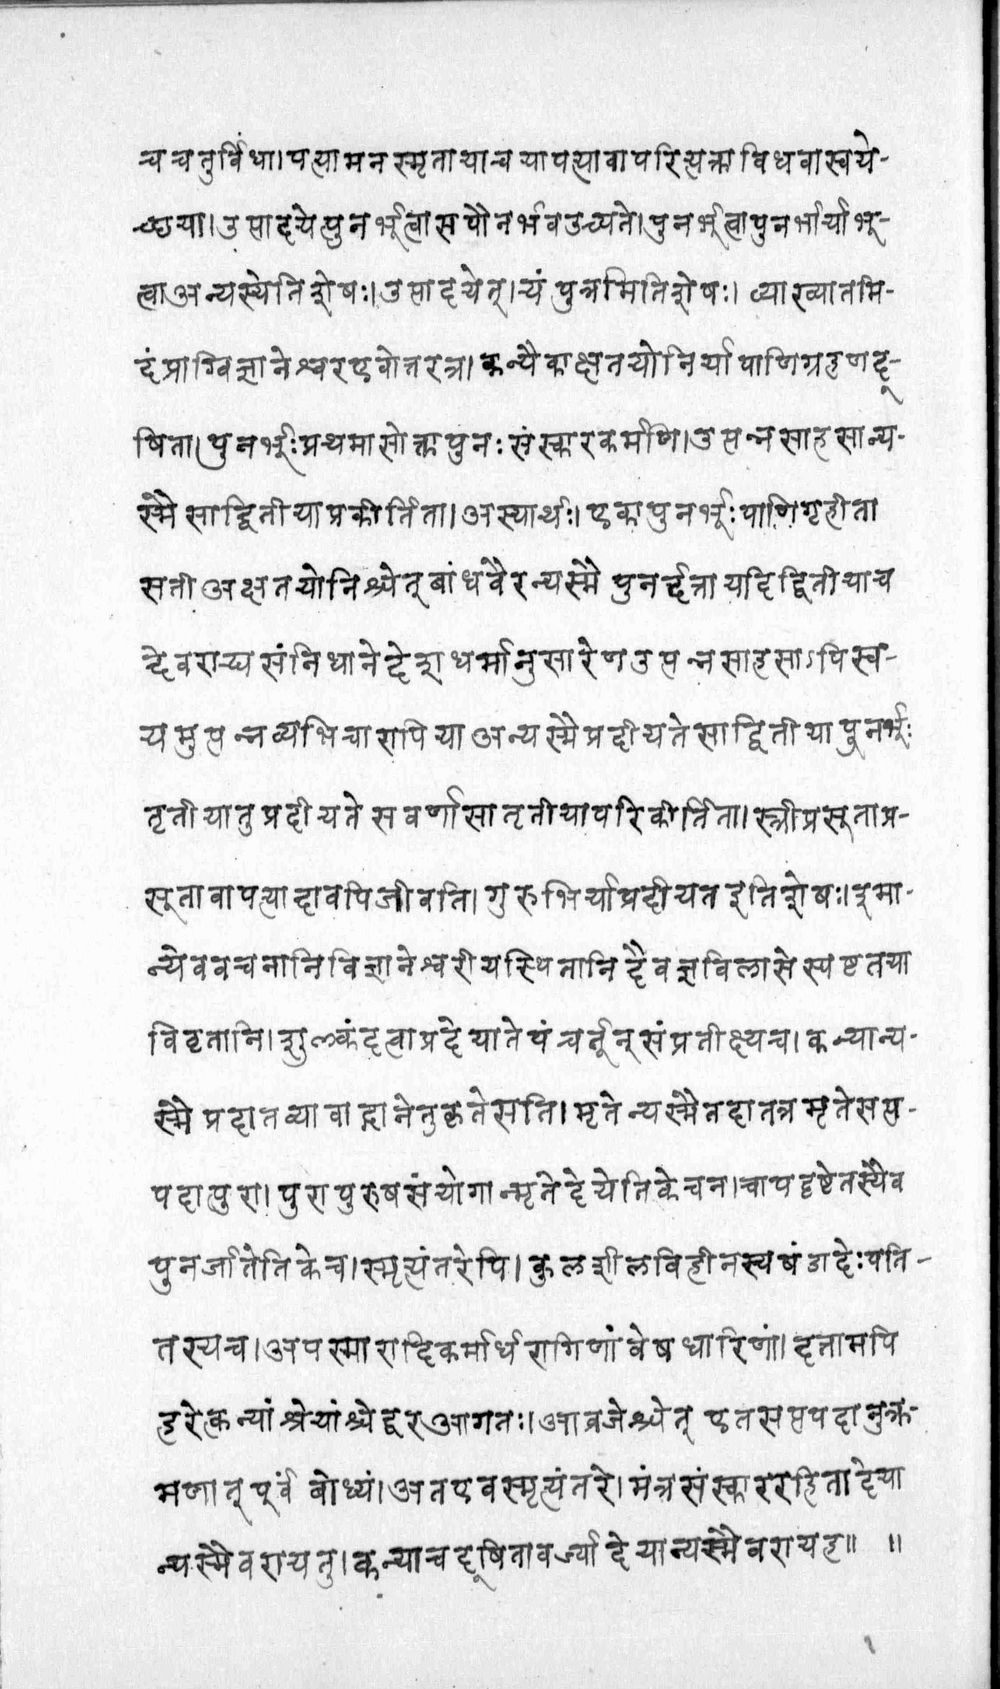 च चतुर्विधा। पत्यामनस्मृतायाच यापत्यावापरित्यक्ता विधवास्वये-
च्छया। उत्पादयेत्पुनर्भूत्वास पौनर्भवउच्यते। पुनर्भूत्वापुनर्भार्याभू-
त्वाअन्यस्येतिशेषः। उत्पादयेत्। यं पुत्रमितिशेषः। व्याख्यातमि-
दंप्राग्विज्ञानेश्वरएवोत्तरत्र। कन्यैवाक्षतयोनिर्यापाणिग्रहणदू-
षिता। पुनर्भूःप्रथमासोक्तापुनःसंस्कारकर्मणि। उत्पन्नसाहसान्य-
स्मै साद्वितीयाप्रकीर्तिता। अस्यार्थः। एकापुनर्भूःपाणिगृहीता
सतीअक्षतयोनिश्चेत् बांधवैरन्यस्मै पुनर्द्दत्तायदिद्वितीयाच
देवराद्यसंनिधानेदेशधर्मानुसारेणउत्पन्नसाहसाऽपिस्व-
यमुत्पन्नव्यभिचारापियाअन्यस्मैप्रदीयतेसाद्वितीयापुनर्भूः
तृतीयातुप्रदीयते सवर्णासातृतीयापरिकीर्तिता। स्त्रीप्रसूताप्र-
सूतावापत्यादावपिजीवति। गुरुभिर्याप्रदीयतइतिशेषः। इमा-
न्येववचनानिविज्ञानेश्वरीयस्थितानिदैवज्ञविलासेस्पष्टतया
विवृतानि। शुल्कंदत्वाप्रदेयातेपंचर्तून्संप्रतीक्ष्यच। कन्यान्य-
स्मै प्रदातव्यावाग्दानेतुकृतेसति। मृतेन्यस्मैतदातत्रमृतेसप्त-
पदात्पुरा। पुरापुरुषसंयोगान्मृतेदेयेतिकेचन। चापदृष्टेतस्यैव
पुनर्जातेतिकेच। स्मृत्यंतरेपि। कुलशीलविहीनस्यषंडादेःपति-
तस्यच। अपस्मारादिकर्मार्थरागिणांवेषधारिणां। दत्तामपि
हरेत्कन्यांश्रेयांश्चेद्वरआगतः। आव्रजेश्चेत् एतसप्तपदानुक्र-
मणात् पूर्वं बोध्यं। अतएवस्मृत्यंतरे। मंत्रसंस्काररहितादेया
न्यस्मैवरायतु। कन्याचदूषितावर्ज्यादेयान्यस्मैवरायह॥ ॥
१